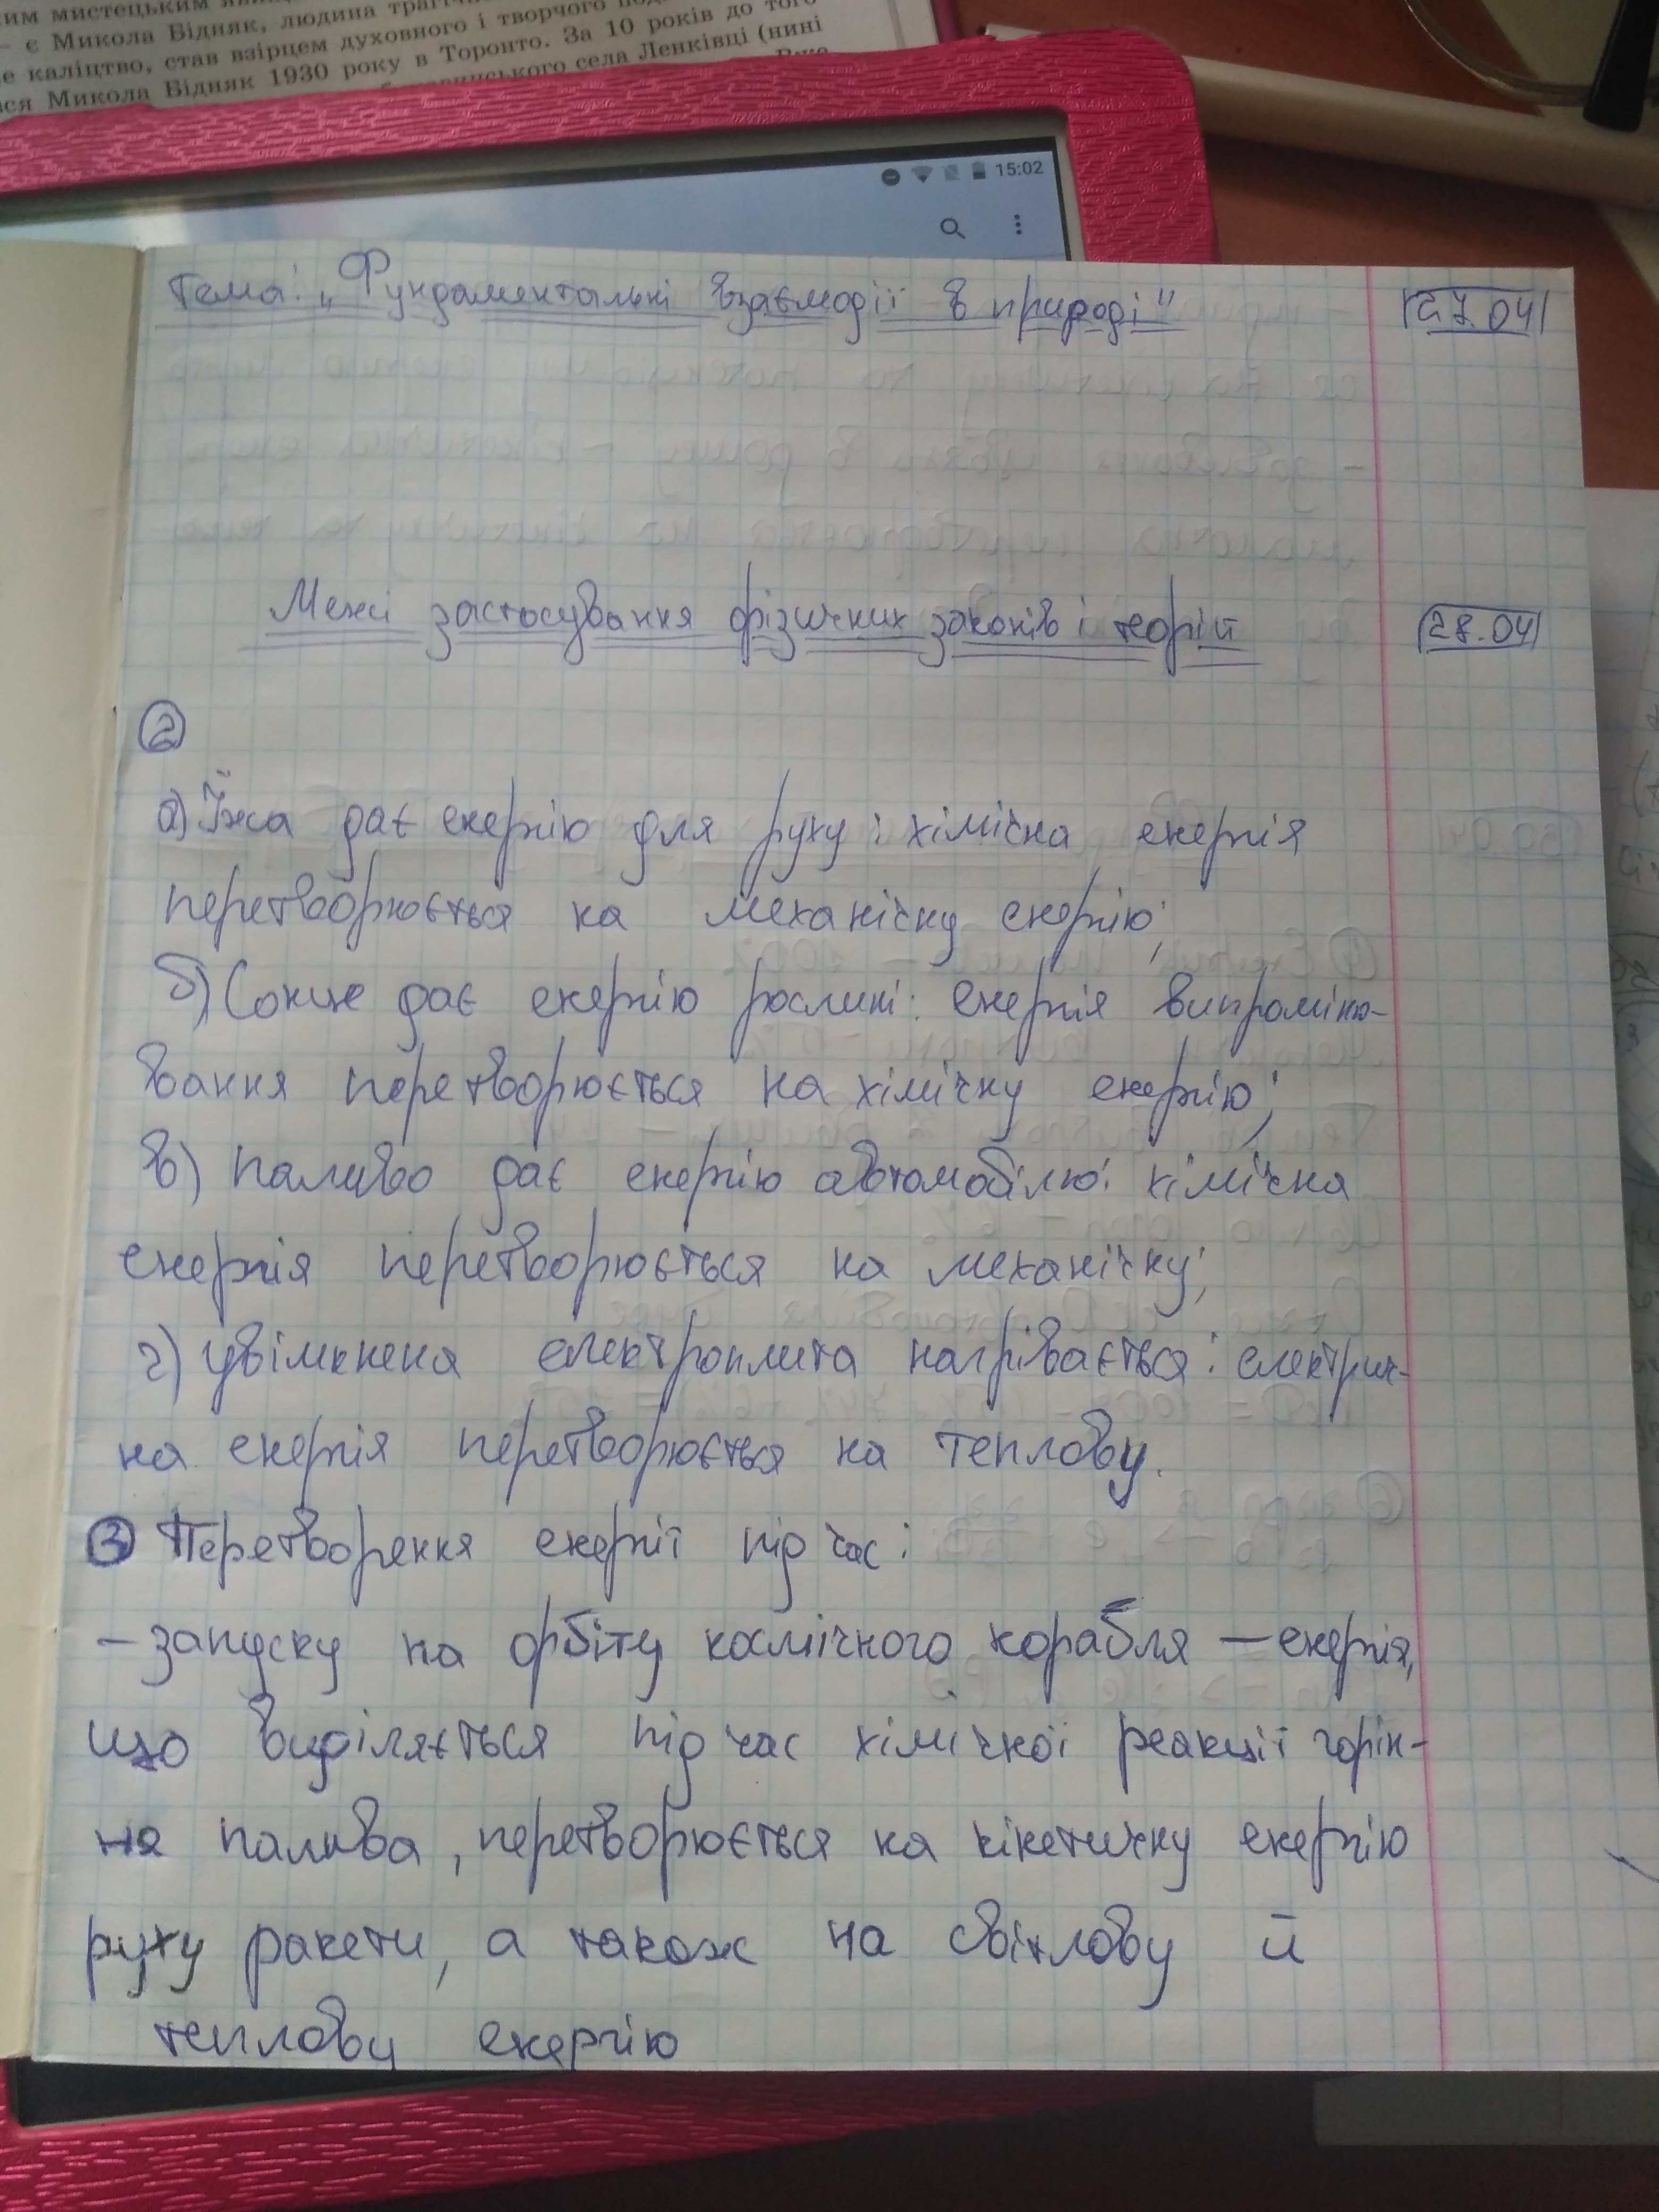 ким мистецьким
– є Микола Відняк, людина
е каліцтво, став взірцем духовного і творчого
ся Микола Відняк 1930 року в Торонто. За 10 років до того
ського села Ленківці (нині
15:02
Тема: „Фундаментальні взаємодії в природі"
27.04
Межі застосування фізичних законів і теорій
28.04
2
а) Їжа дає енергію для руху: хімічна енергія
перетворюється на механічну енергію;
б) Сонце дає енергію рослині: енергія випроміню-
вання перетворюється на хімічну енергію;
в) паливо дає енергію автомобілю: хімічна
енергія перетворюється на механічну;
г) увімкнена електроплита нагрівається: електрич-
на енергія перетворюється на теплову.
3 Перетворення енергії під час:
– запуску на орбіту космічного корабля – енергія,
що виділяється під час хімічної реакції горін-
ня палива, перетворюється на кінетичну енергію
руху ракети, а також на світлову й
теплову енергію